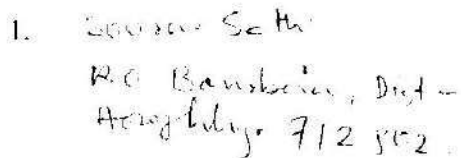 1. Seth
P.O. Bansberia, Dist -
Hooghly. 712 502.